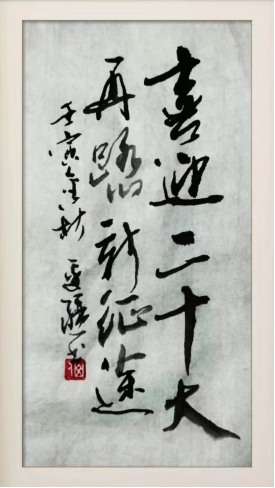 喜迎二十大
再踏新征途
壬寅金秋